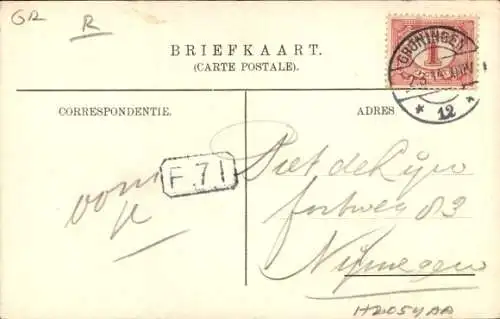 GR
R
BRIEFKAART.
(CARTE POSTALE).
GRONINGEN
1
12
CORRESPONDENTIE.
ADRES
F.71
Piet de Rijn
fortweg 83
Nijmegen
H2054AA